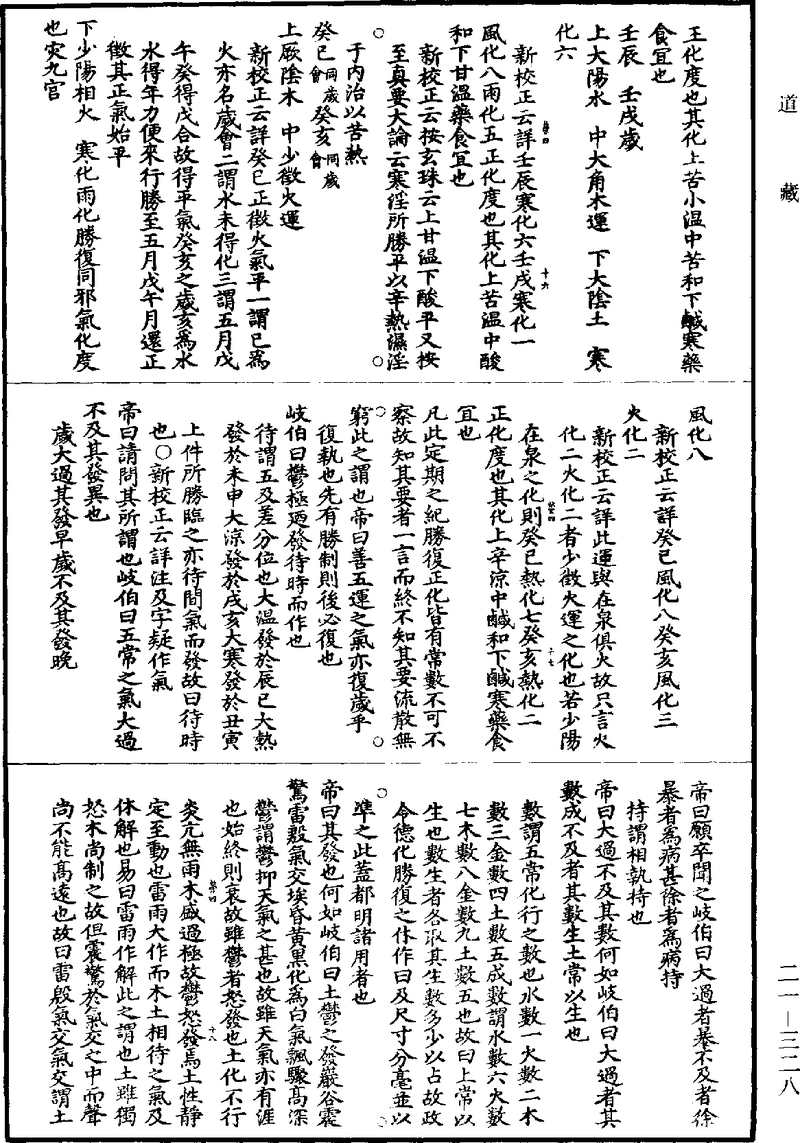 道藏
王化度也其化上苦小温中苦和下鹹寒藥
食宜也
壬辰　壬戌歲
上大陽水　中大角木運　下大陰土　寒
化六
新校正云詳壬辰寒化六壬戌寒化一
風化八雨化五正化度也其化上苦温中酸
和下甘温藥食宜也
新校正云按玄珠云上甘温下酸平又按
至真要大論云寒淫所勝平以辛熱濕淫
于内治以苦熱
癸巳同歲會癸亥同歲會
上厥陰木　中少徵火運
新校正云詳癸巳正徵火氣平一謂巳為
火亦名歲會二謂水未得化三謂五月戊
午癸得戊合故得平氣癸亥之歲亥為水
水得年力便來行勝至五月戊午月還正
徵其正氣始平
下少陽相火　寒化雨化勝復同邪氣化度
也災九宫
風化八
新校正云詳癸巳風化八癸亥風化三
火化二
新校正云詳此運與在泉俱火故只言火
化二火化二者少徵火運之化也若少陽
在泉之化則癸巳熱化七癸亥熱化二
正化度也其化上辛涼中鹹和下鹹寒藥食
宜也
凡此定期之紀勝復正化皆有常數不可不
察故知其要者一言而終不知其要流散無
窮此之謂也帝曰善五運之氣亦復歲乎
復執也先有勝制則後必復也
岐伯曰鬱極迺發待時而作也
待謂五及差分位也大温發於辰巳大熱
發於未申大涼發於戌亥大寒發於丑寅
上件所勝臨之亦待間氣而發故曰待時
也○新校正云詳注及字疑作氣
帝曰請問其所謂也岐伯曰五常之氣大過
不及其發異也
歲大過其發早歲不及其發晚
帝曰願卒聞之岐伯曰大過者暴不及者徐
暴者為病甚徐者為病持
持謂相執持也
帝曰大過不及其數何如岐伯曰大過者其
數成不及者其數生土常以生也
數謂五常化行之數也水數一火數二木
數三金數四土數五成數謂水數六火數
七木數八金數九土數五也故曰土常以
生也數生者各取其生數多少以占故政
令德化勝復之休作日及尺寸分毫並以
準之此蓋都明諸用者也
帝曰其發也何如岐伯曰土鬱之發巖谷震
驚雷殷氣交埃昏黄黑化為白氣飄驟高深
鬱謂鬱抑天氣之甚也故雖天氣亦有涯
也始終則衰故雖鬱者怒發也土化不行
炎亢無雨木盛過極故鬱怒發焉土性靜
定至動也雷雨大作而木土相待之氣及
体解也易曰雷雨作解此之謂也土雖獨
怒木尚制之故但震驚於氣交之中而聲
尚不能高遠也故曰雷殷氣交氣交謂土
二一—三二八